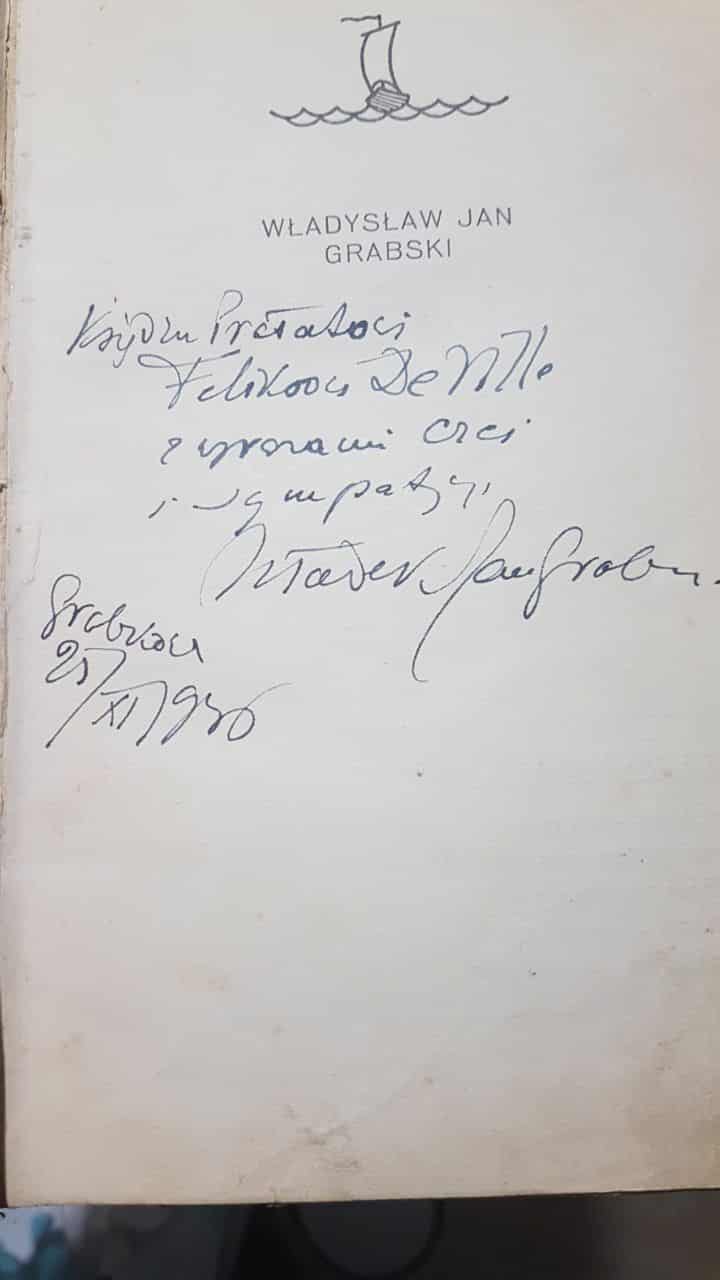 WŁADYSŁAW JAN
GRABSKI
Księdzu Prałatowi
Feliksowi De Ville
z wyrazami czci
i sympatyi
Władek Jan Grabski
25/XI 1936